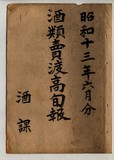 昭和十三年六月分
酒類賣渡高旬報
酒課